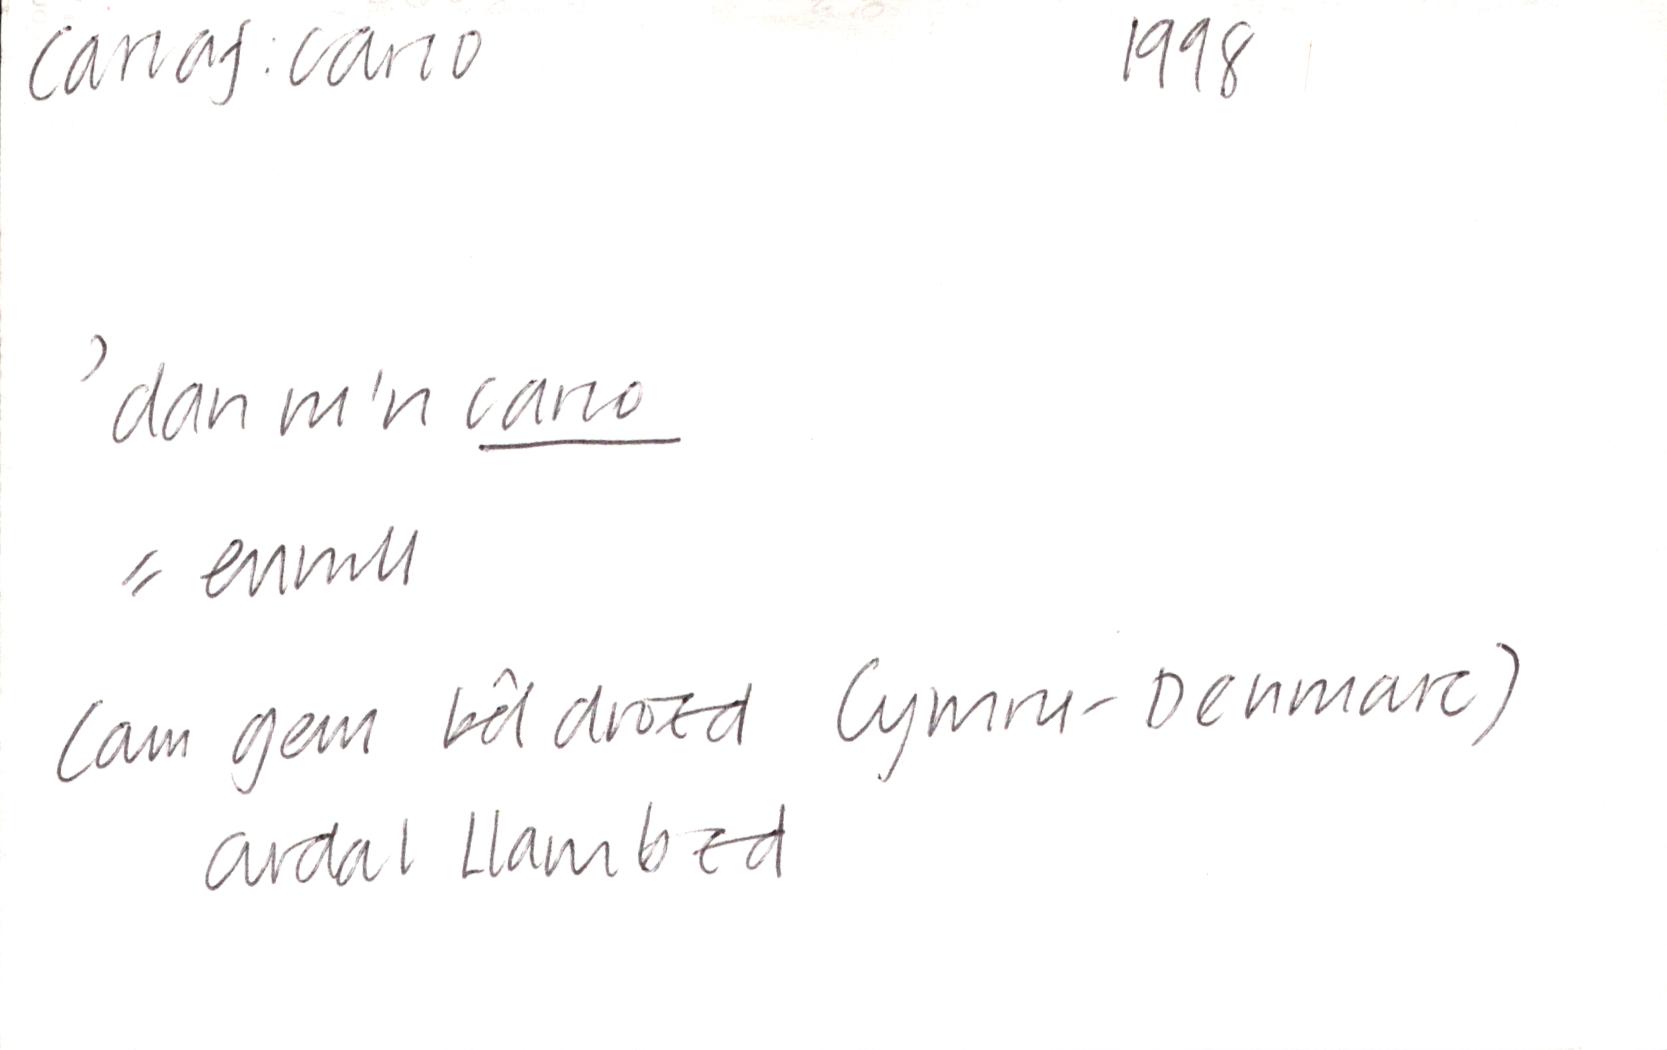 cariaf: cario 1998
'dan ni'n cario
= ennill
(am gem bêl droed Cymru-Denmarc)
ardal Llambed